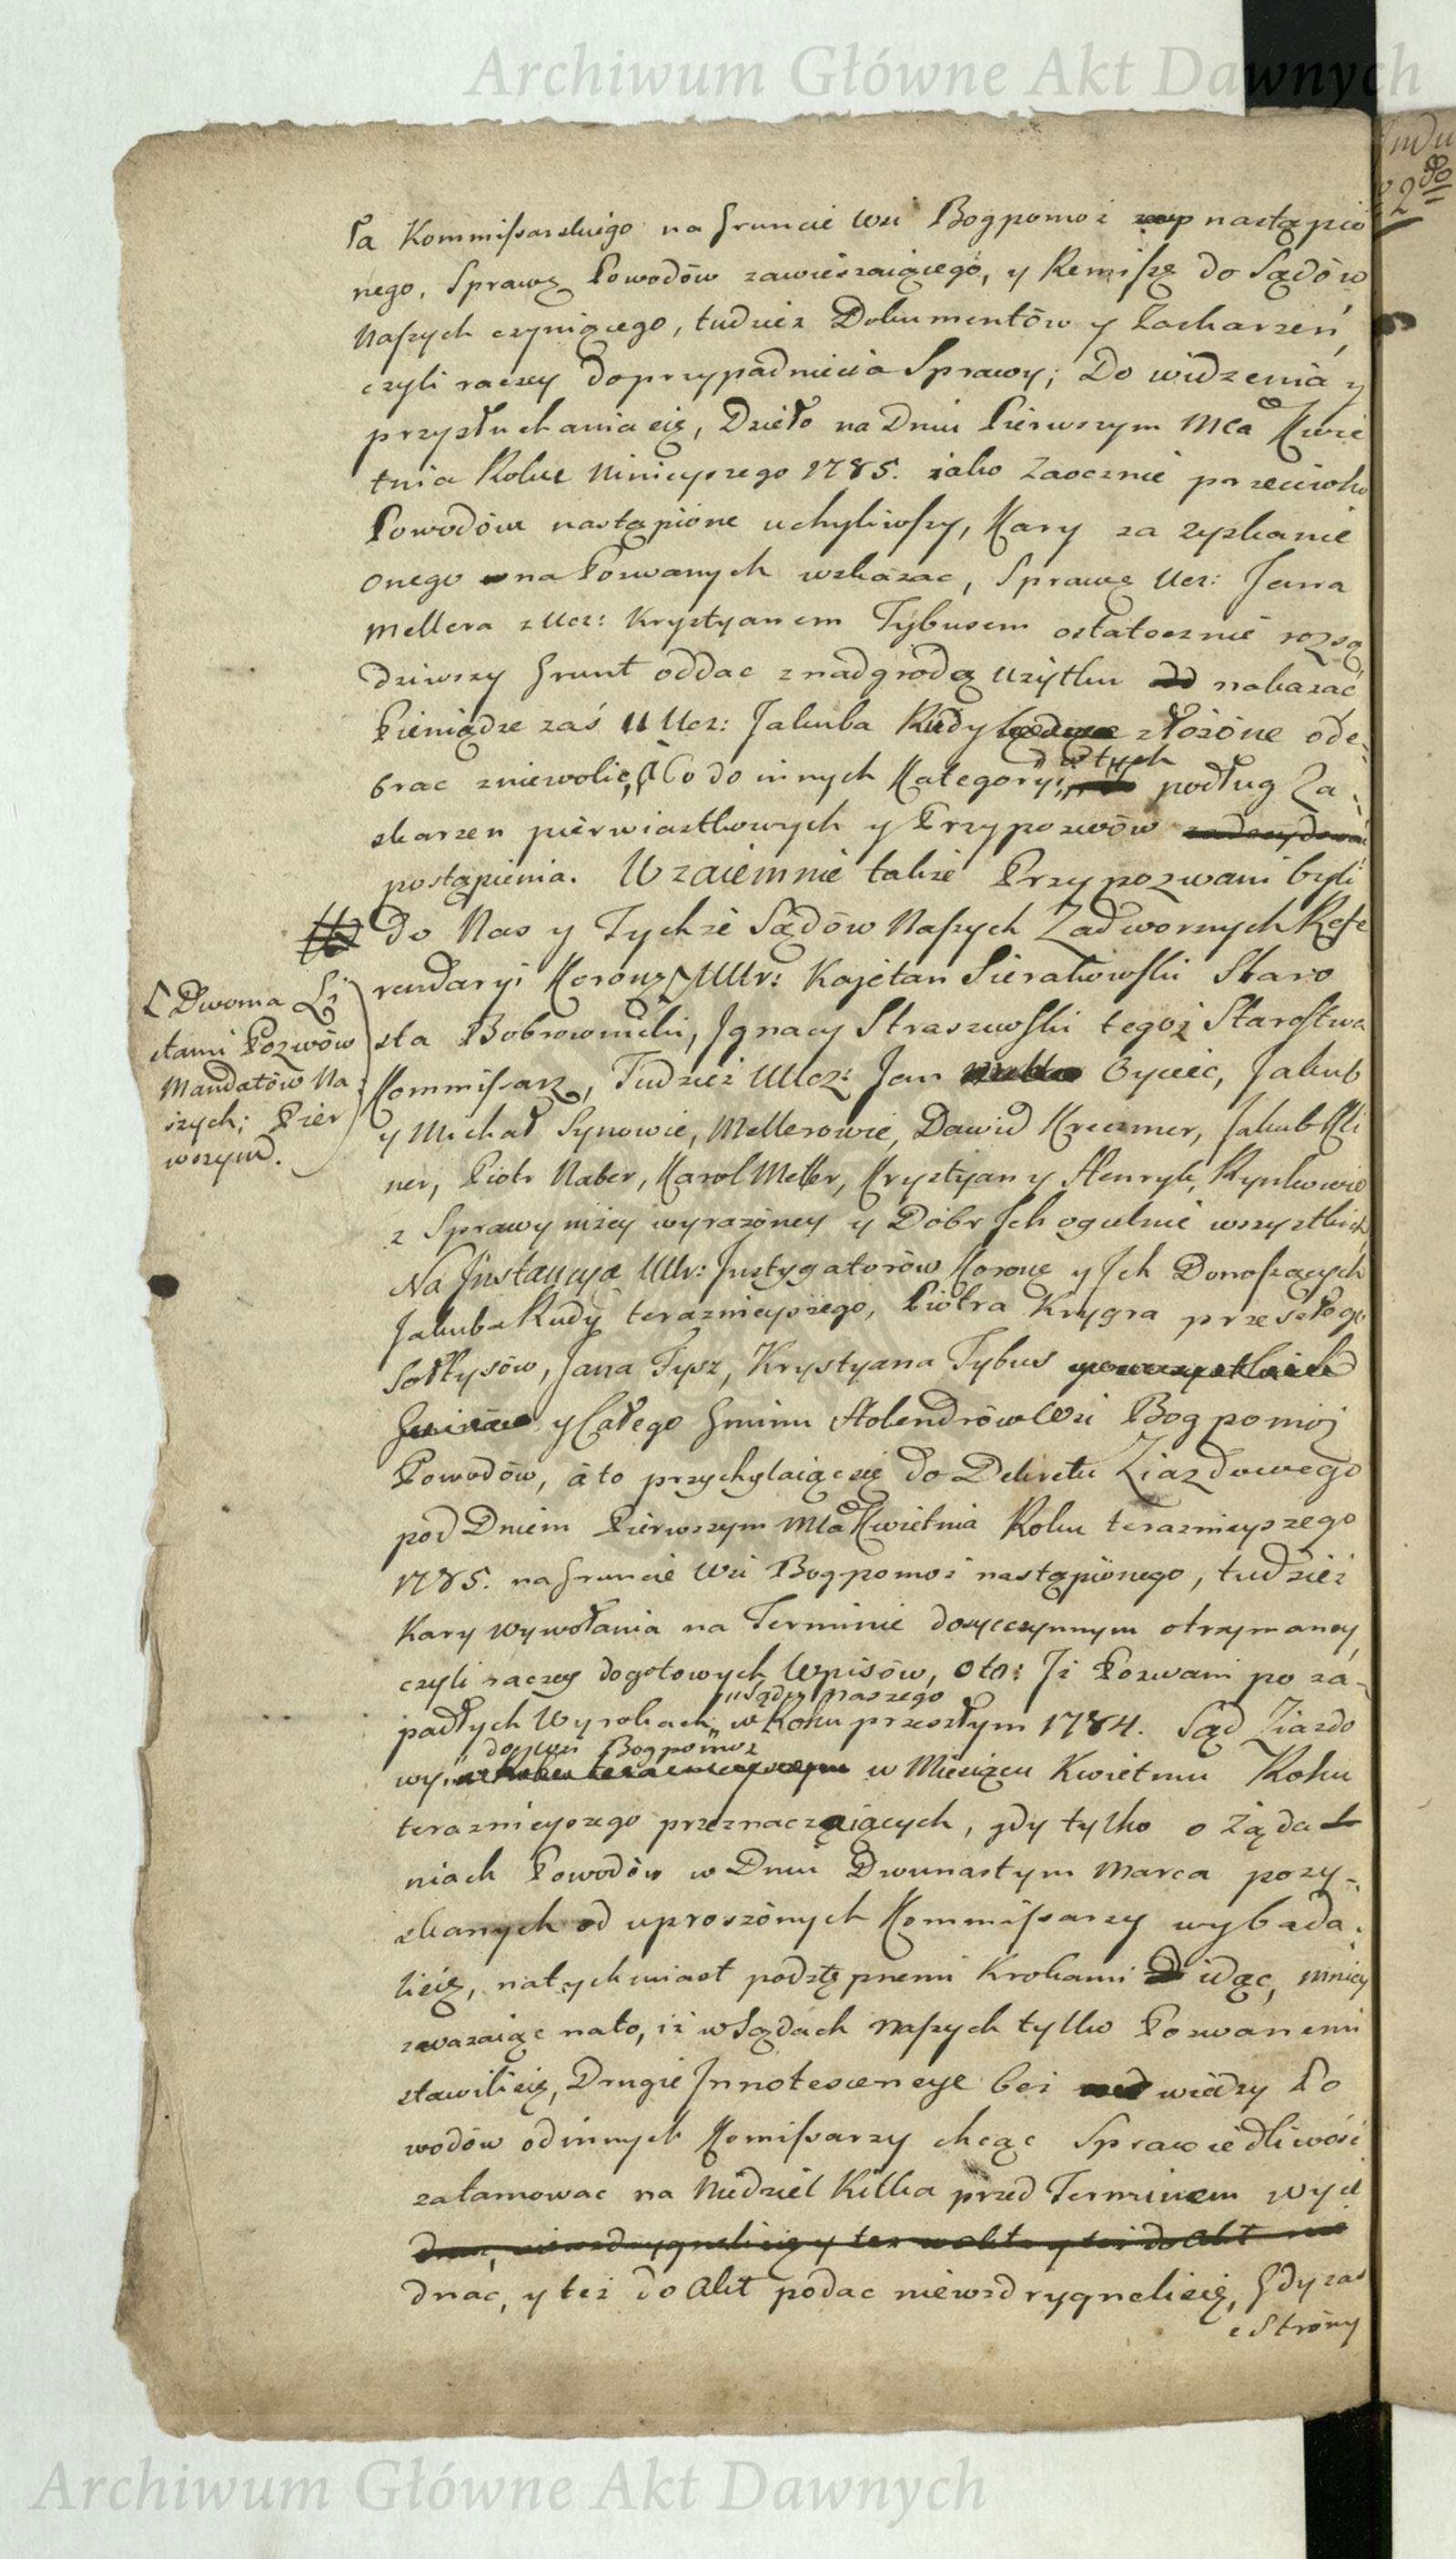 Archiwum Główne Akt Dawnych
ła Kommissarskiego na Gruncie Wsi Bogpomoż nastąpio
nego, Sprawę Powodów zawieszaiącego, y Remissę do Sądów
Naszych czyniącego, tudzież Dokumentów y Zaskarzeń,
czyli raczey do przypadnienia Sprawy; Do widzenia y
przysłuchania się, Dzieło na Dniu Pierwszym Mca Kwie
tnia Roku Ninieyszego 1785. iako Zaocznie przeciwko
Powodów nastąpione uchyliwszy, Kary za zyskanie
onego na Pozwanych wskazac, Sprawę Ucz: Jana
Mellera z Ucz: Krystyanem Tybusem ostatecznie rozsą
dziwszy Grunt oddac z nadgrodą uzytku nakazać
Pieniądze zaś u Ucz: Jakuba Rudy złożone ode-
brac zniewolić, Co do innych Kategoryi
podług Za-
skarzen pierwiastkowych y Przypozwów
postąpienia. Wzaiemnie także Przypozwani byli
do Nas y Tychże Sądów Naszych Zadwornych Refe
rendaryi Koronn: UUr: Kajetan Sierakowski Staro
sta Bobrownicki, Ignacy Straszewski tegoż Starostwa
Kommissarz, Tudzież UUcz: Jan Oyciec, Jakub
y Michał Synowie, Mellerowie, Dawid Kreczmer, Jakub Kli
ner, Piotr Naber, Karol Meller, Krystyan y Henryk, Rynkowie
z Sprawy niżey wyrażoney y Dobr Ich ogulnie wszystkich
Na Instancyą UUr: Instygatorów Koronn y Ich Donoszących
Jakuba Rudy terazniejszego, Piotra Krygra przeszłego
Sołtysów, Jana Tysz, Krystyana Tybus
y Całego Gminu Holendrów Wsi Bogpomoż
Powodów, à to przychylaiąc się do Dekretu Ziazdowego
pod Dniem Pierwszym Mca Kwietnia Roku terazniejszego
1785. na Gruncie Wsi Bogpomoż nastąpionego, tudzież
Kary wywołania na Terminie dosyczynnym otrzymaney,
czyli raczey do gotowych Wpisów, oto: Iż Pozwani po za-
Sądu Naszego
padłych Wyrokach w Roku przeszłym 1784. Sąd Ziazdo
do Wsi Bogpomoż
wy w Miesiącu Kwietniu Roku
terazniejszego przeznaczaiących, gdy tylko o Żąda
niach Powodów w Dniu Dwunastym Marca pozy-
skanych od uproszonych Kommissarzy wybada-
li się, natychmiast podstępnemi Krokami idąc, mniey
zwazaiąc na to, iż w Sądach Naszych tylko Pozwanemi
stawili się, Drugie Innotescencye bez wiedzy Po
wodów od innych Komissarzy chcąc Sprawiedliwość
zatamowac na Niedziel Kilka przed Terminem wyie
dnac, y też do Akt podac niewzdrygneli się, Gdy zas
z Strony
[ Dwoma Li
stami Pozwów
Mandatów Na
szych; Pier
wszym.
Archiwum Główne Akt Dawnych